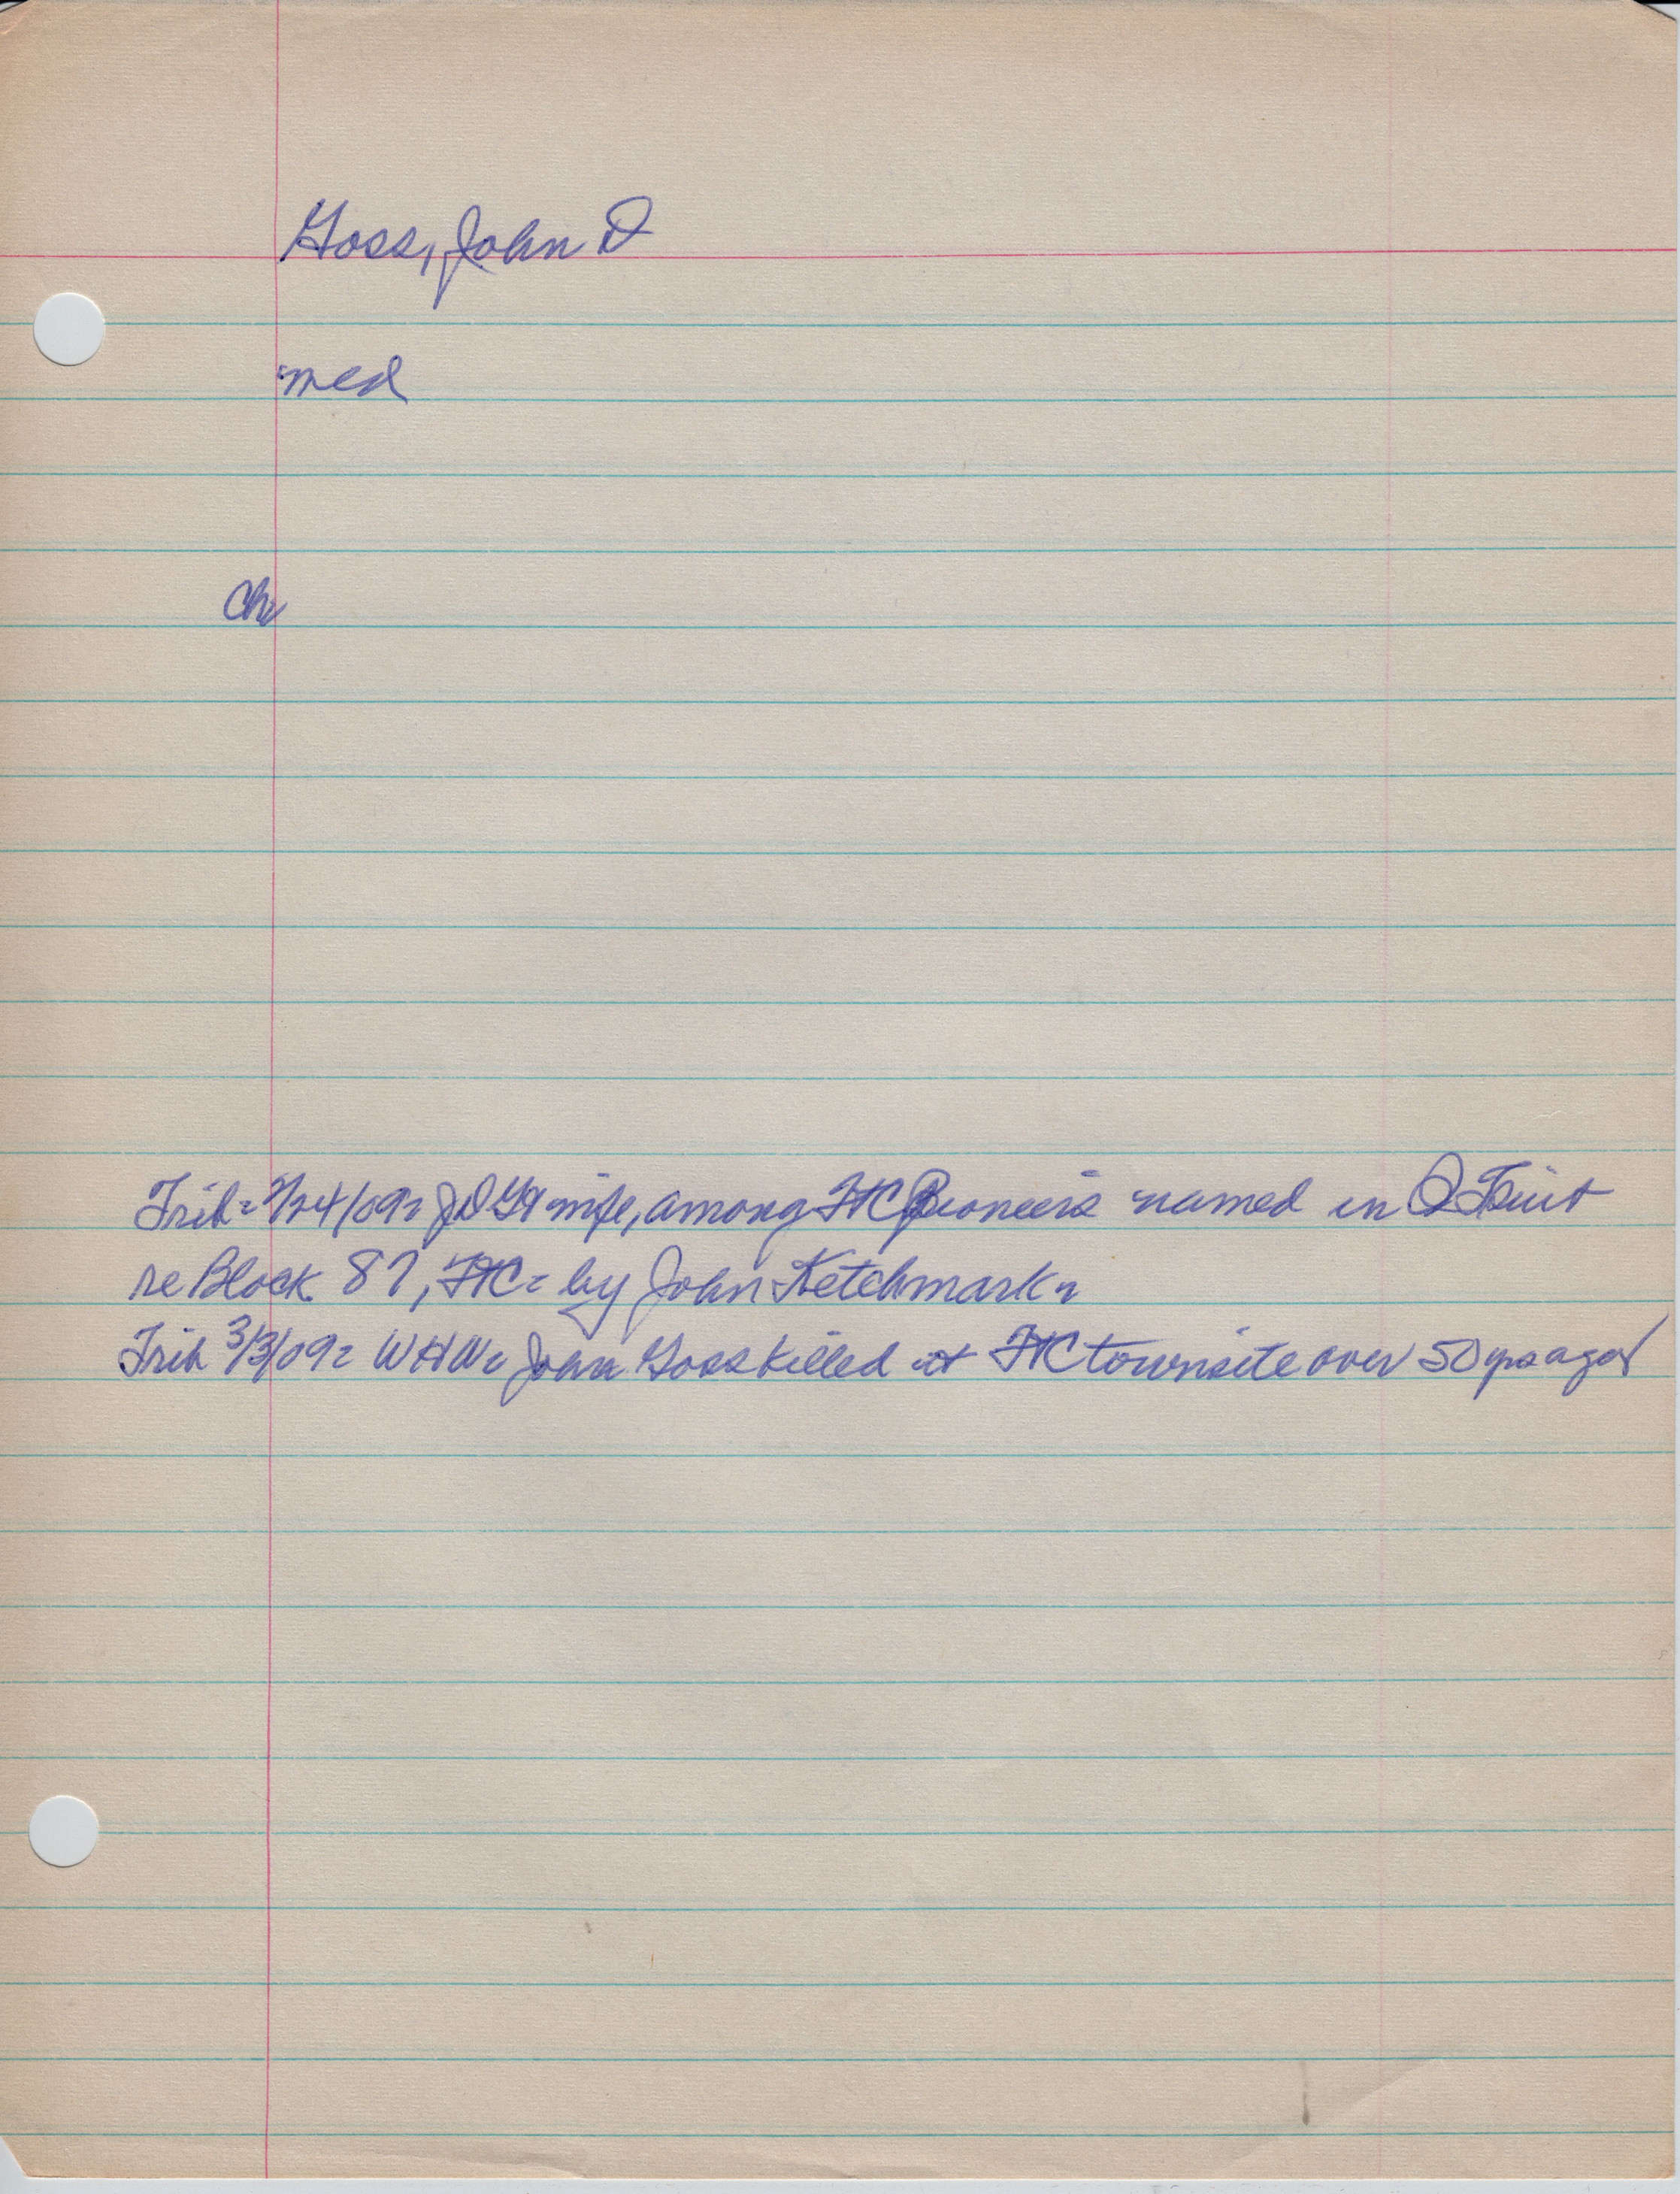 Goss, John D
med
Ch
Trib= /24/09= JDG & wife, among FC Pioneers named in Q
re Block 87, FC= by John Ketchmark=
Trib 3/3/09= WHW= John Goss killed at FC townsite over 50 yrs ago